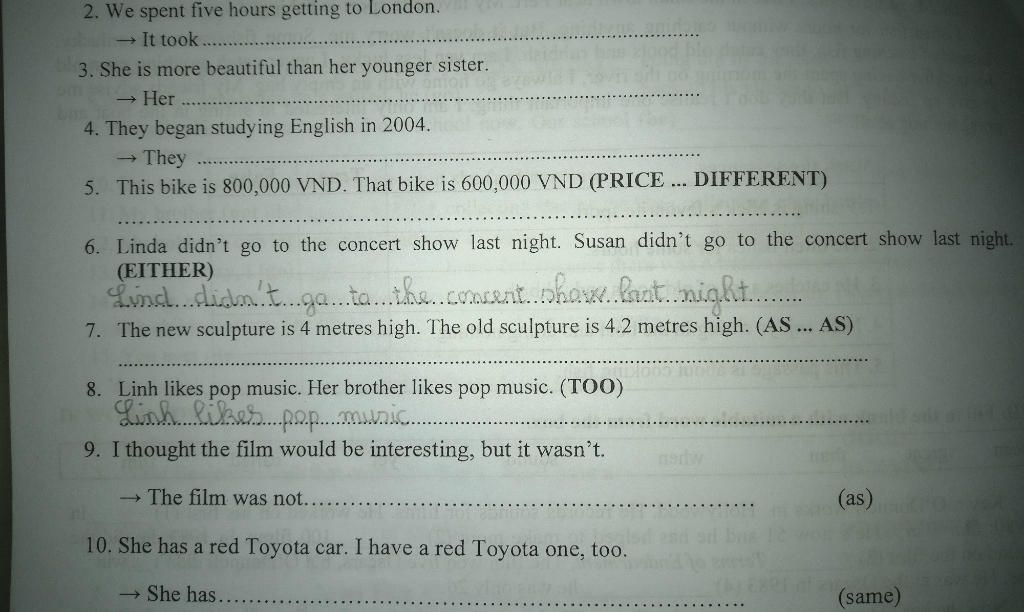 2. We spent five hours getting to London.
→ It took ........................................................................
3. She is more beautiful than her younger sister.
→ Her ........................................................................
4. They began studying English in 2004.
→ They ........................................................................
5. This bike is 800,000 VND. That bike is 600,000 VND (PRICE ... DIFFERENT)
........................................................................
6. Linda didn't go to the concert show last night. Susan didn't go to the concert show last night.
(EITHER)
Lind didn't go to the concert show last night
7. The new sculpture is 4 metres high. The old sculpture is 4.2 metres high. (AS ... AS)
........................................................................
8. Linh likes pop music. Her brother likes pop music. (TOO)
Linh likes pop music
9. I thought the film would be interesting, but it wasn't.
→ The film was not........................................................................ (as)
10. She has a red Toyota car. I have a red Toyota one, too.
→ She has........................................................................ (same)